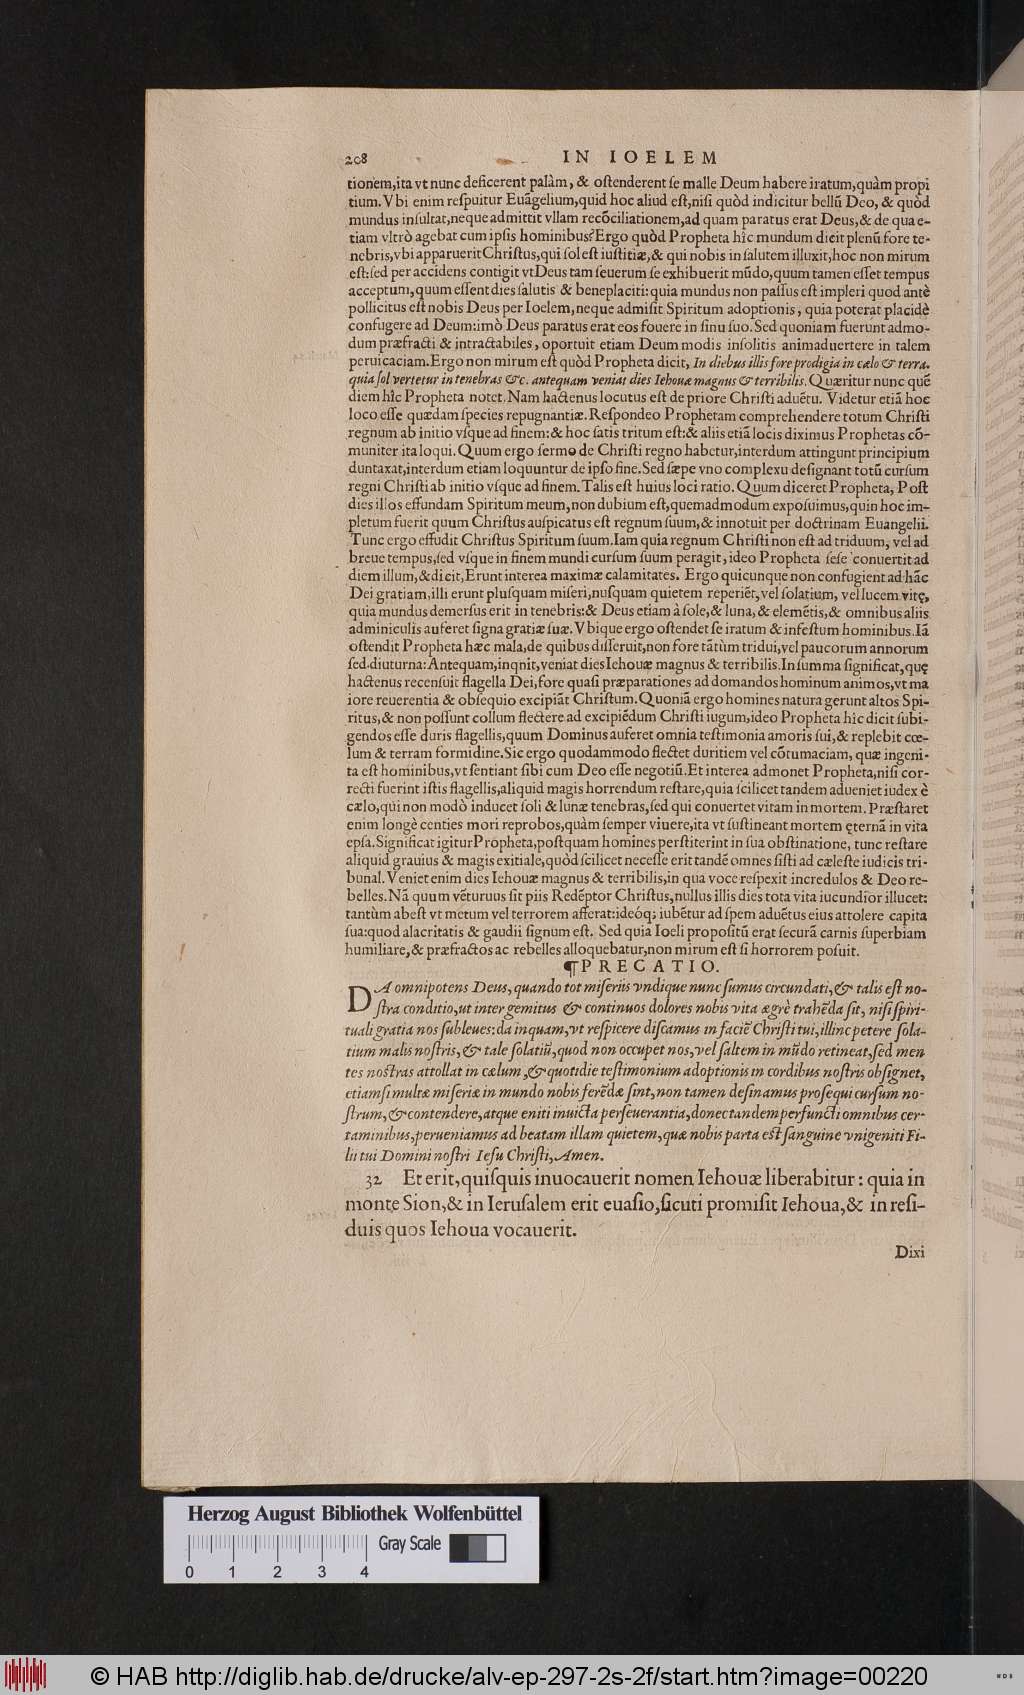 208 IN IOELEM
tionem,ita vt nunc deficerent palàm, & oſtenderent ſe malle Deum habere iratum,quàm propi
tium. Vbi enim reſpuitur Euãgelium,quid hoc aliud eſt,niſi quòd indicitur bellũ Deo, & quòd
mundus inſultat,neque admittit vllam recõciliationem,ad quam paratus erat Deus,& de qua e-
tiam vltrò agebat cum ipſis hominibus? Ergo quòd Propheta hîc mundum dicit plenũ fore te-
nebris,vbi apparuerit Chriſtus,qui ſol eſt iuſtitiæ,& qui nobis in ſalutem illuxit,hoc non mirum
eſt:ſed per accidens contigit vt Deus tam ſeuerum ſe exhibuerit mũdo,quum tamen eſſet tempus
acceptum,quum eſſent dies ſalutis & beneplaciti:quia mundus non paſſus eſt impleri quod antè
pollicitus eſt nobis Deus per Ioelem,neque admiſit Spiritum adoptionis, quia poterat placidè
confugere ad Deum:imò Deus paratus erat eos fouere in ſinu ſuo. Sed quoniam fuerunt admo-
dum præfracti & intractabiles, oportuit etiam Deum modis inſolitis animaduertere in talem
peruicaciam. Ergo non mirum eſt quòd Propheta dicit, In diebus illis fore prodigia in cælo & terra.
quia ſol vertetur in tenebras &c. antequam veniat dies Iehouæ magnus & terribilis. Quæritur nunc quẽ
diem hîc Propheta notet. Nam hactenus locutus eſt de priore Chriſti aduẽtu. Videtur etiã hoc
loco eſſe quædam ſpecies repugnantiæ. Reſpondeo Prophetam comprehendere totum Chriſti
regnum ab initio vſque ad finem:& hoc ſatis tritum eſt:& aliis etiã locis diximus Prophetas cõ-
muniter ita loqui. Quum ergo ſermo de Chriſti regno habetur,interdum attingunt principium
duntaxat,interdum etiam loquuntur de ipſo fine. Sed ſæpe vno complexu deſignant totũ curſum
regni Chriſti ab initio vſque ad finem. Talis eſt huius loci ratio. Quum diceret Propheta, Poſt
dies illos effundam Spiritum meum,non dubium eſt,quemadmodum expoſuimus,quin hoc im-
pletum fuerit quum Chriſtus auſpicatus eſt regnum ſuum,& innotuit per doctrinam Euangelii.
Tunc ergo effudit Chriſtus Spiritum ſuum. Iam quia regnum Chriſti non eſt ad triduum, vel ad
breue tempus,ſed vſque in finem mundi curſum ſuum peragit, ideo Propheta ſeſe conuertit ad
diem illum,& dicit, Erunt interea maximæ calamitates. Ergo quicunque non confugient ad hãc
Dei gratiam,illi erunt pluſquam miſeri,nuſquam quietem reperiẽt,vel ſolatium, vel lucem vitę,
quia mundus demerſus erit in tenebris:& Deus etiam à ſole,& luna,& elemẽtis,& omnibus aliis
adminiculis auferet ſigna gratiæ ſuæ. Vbique ergo oſtendet ſe iratum & infeſtum hominibus. Iã
oſtendit Propheta hæc mala,de quibus diſſeruit,non fore tãtùm tridui,vel paucorum annorum
ſed diuturna: Antequam,inqnit,veniat dies Iehouæ magnus & terribilis. In ſumma ſignificat,quę
hactenus recenſuit flagella Dei,fore quaſi præparationes ad domandos hominum animos,vt ma
iore reuerentia & obſequio excipiãt Chriſtum. Quoniã ergo homines natura gerunt altos Spi-
ritus,& non poſſunt collum flectere ad excipiẽdum Chriſti iugum,ideo Propheta hîc dicit ſubi-
gendos eſſe duris flagellis,quum Dominus auferet omnia teſtimonia amoris ſui,& replebit cœ-
lum & terram formidine. Sic ergo quodammodo flectet duritiem vel cõtumaciam, quæ ingeni-
ta eſt hominibus,vt ſentiant ſibi cum Deo eſſe negotiũ. Et interea admonet Propheta,niſi cor-
recti fuerint iſtis flagellis,aliquid magis horrendum reſtare,quia ſcilicet tandem adueniet iudex è
cælo,qui non modò inducet ſoli & lunæ tenebras,ſed qui conuertet vitam in mortem. Præſtaret
enim longè centies mori reprobos,quàm ſemper viuere,ita vt ſuſtineant mortem ęternã in vita
epſa. Significat igitur Propheta,poſtquam homines perſtiterint in ſua obſtinatione, tunc reſtare
aliquid grauius & magis exitiale,quòd ſcilicet neceſſe erit tandẽ omnes ſiſti ad cæleſte iudicis tri-
bunal. Veniet enim dies Iehouæ magnus & terribilis,in qua voce reſpexit incredulos & Deo re-
belles. Nã quum vẽturuus ſit piis Redẽptor Chriſtus,nullus illis dies tota vita iucundior illucet:
tantùm abeſt vt metum vel terrorem afferat:ideóq; iubẽtur ad ſpem aduẽtus eius attolere capita
ſua:quod alacritatis & gaudii ſignum eſt. Sed quia Ioeli propoſitũ erat ſecurã carnis ſuperbiam
humiliare,& præfractos ac rebelles alloquebatur,non mirum eſt ſi horrorem poſuit.
¶PRECATIO.
DA omnipotens Deus, quando tot miſeriis vndique nunc ſumus circundati,& talis eſt no-
ſtra conditio,ut inter gemitus & continuos dolores nobis vita ægrè trahẽda ſit, niſi ſpiri-
tuali gratia nos ſubleues:da inquam,vt reſpicere diſcamus in faciẽ Chriſti tui,illinc petere ſola-
tium malis noſtris,& tale ſolatiũ,quod non occupet nos,vel ſaltem in mũdo retineat,ſed men
tes noſtras attollat in cælum,& quotidie teſtimonium adoptionis in cordibus noſtris obſignet,
etiamſi multæ miſeriæ in mundo nobis ferẽdæ ſint,non tamen deſinamus proſequi curſum no-
ſtrum,& contendere,atque eniti inuicta perſeuerantia,donec tandem perfuncti omnibus cer-
taminibus,perueniamus ad beatam illam quietem,quæ nobis parta eſt ſanguine vnigeniti Fi-
lii tui Domini noſtri Ieſu Chriſti,Amen.
32 Et erit,quiſquis inuocauerit nomen Iehouæ liberabitur: quia in
monte Sion,& in Ieruſalem erit euaſio,ſicuti promiſit Iehoua,& in reſi-
duis quos Iehoua vocauerit.
Dixi
Herzog August Bibliothek Wolfenbüttel
Gray Scale
0 1 2 3 4
© HAB http://diglib.hab.de/drucke/alv-ep-297-2s-2f/start.htm?image=00220